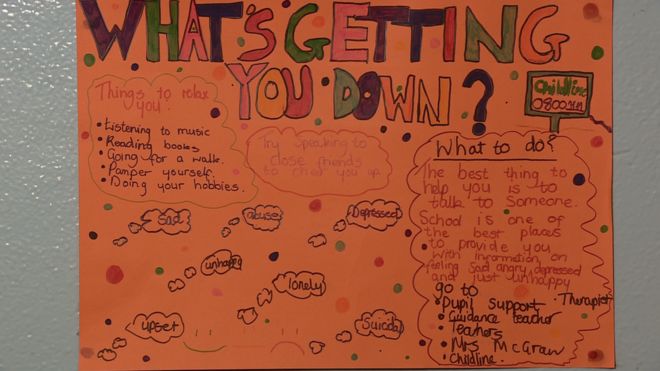 WHAT'S GETTING
YOU DOWN?
Childline
0800 1111
Things to relax
you:
• Listening to music
• Reading books
• Going for a walk.
• Pamper yourself.
• Doing your hobbies.
Try speaking to
close friends
to cheer you up
What to do?
The best thing to
help you is to
talk to someone.
School is one of
the best places
to provide you
with information on
feeling sad angry, depressed
and just unhappy
go to
• Pupil Support • Therapist
• Guidance teacher
• Teachers
• Mrs McGraw
• Childline.
Sad
abuse
Depressed
unhappy
lonely
upset
Suicidal